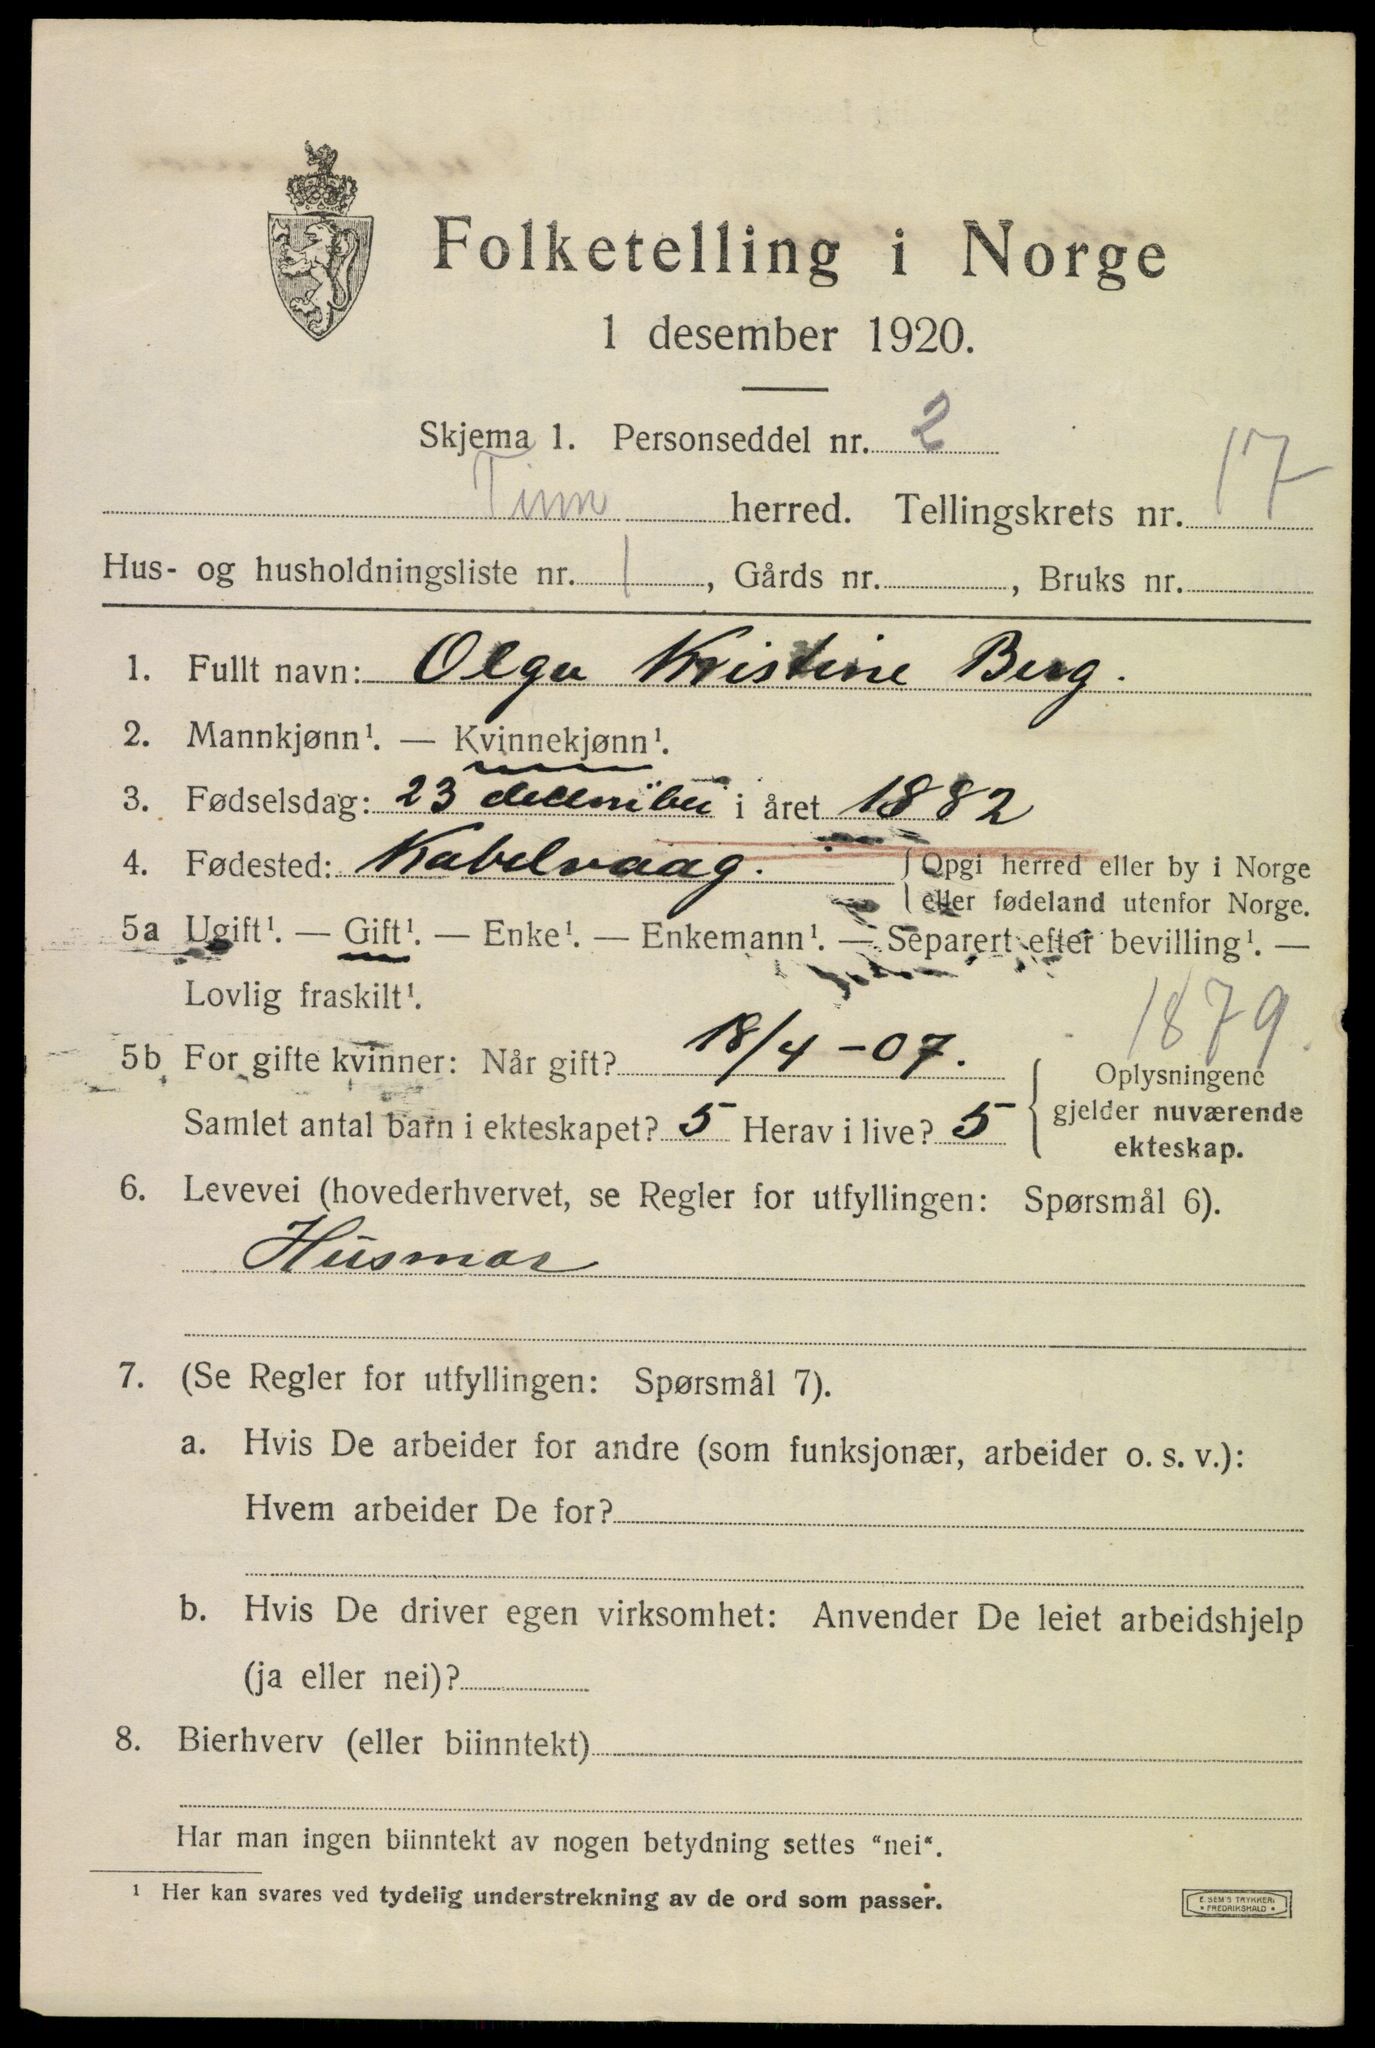 Folketelling i Norge
1 desember 1920.
Skjema 1. Personseddel nr. 2
Tinn herred. Tellingskrets nr. 17
Hus- og husholdningsliste nr. 1, Gårds nr. , Bruks nr.
1. Fullt navn: Olga Kristine Berg.
2. Mannkjønn¹. — Kvinnekjønn¹.
3. Fødselsdag: 23 december i året 1882
4. Fødested: Kabelvaag. Opgi herred eller by i Norge
eller fødeland utenfor Norge.
5a Ugift¹. — Gift¹. — Enke¹. — Enkemann¹. — Separert efter bevilling¹. —
Lovlig fraskilt¹.
1879
5b For gifte kvinner: Når gift? 18/4 - 07. Oplysningene
gjelder nuværende
ekteskap.
Samlet antal barn i ekteskapet? 5 Herav i live? 5
6. Levevei (hovederhvervet, se Regler for utfyllingen: Spørsmål 6).
Husmor
7. (Se Regler for utfyllingen: Spørsmål 7).
a. Hvis De arbeider for andre (som funksjonær, arbeider o. s. v.):
Hvem arbeider De for?
b. Hvis De driver egen virksomhet: Anvender De leiet arbeidshjelp
(ja eller nei)?
8. Bierhverv (eller biinntekt)
Har man ingen biinntekt av nogen betydning settes "nei".
¹ Her kan svares ved tydelig understrekning av de ord som passer.
E. SEM'S TRYKKERI
FREDRIKSHALD